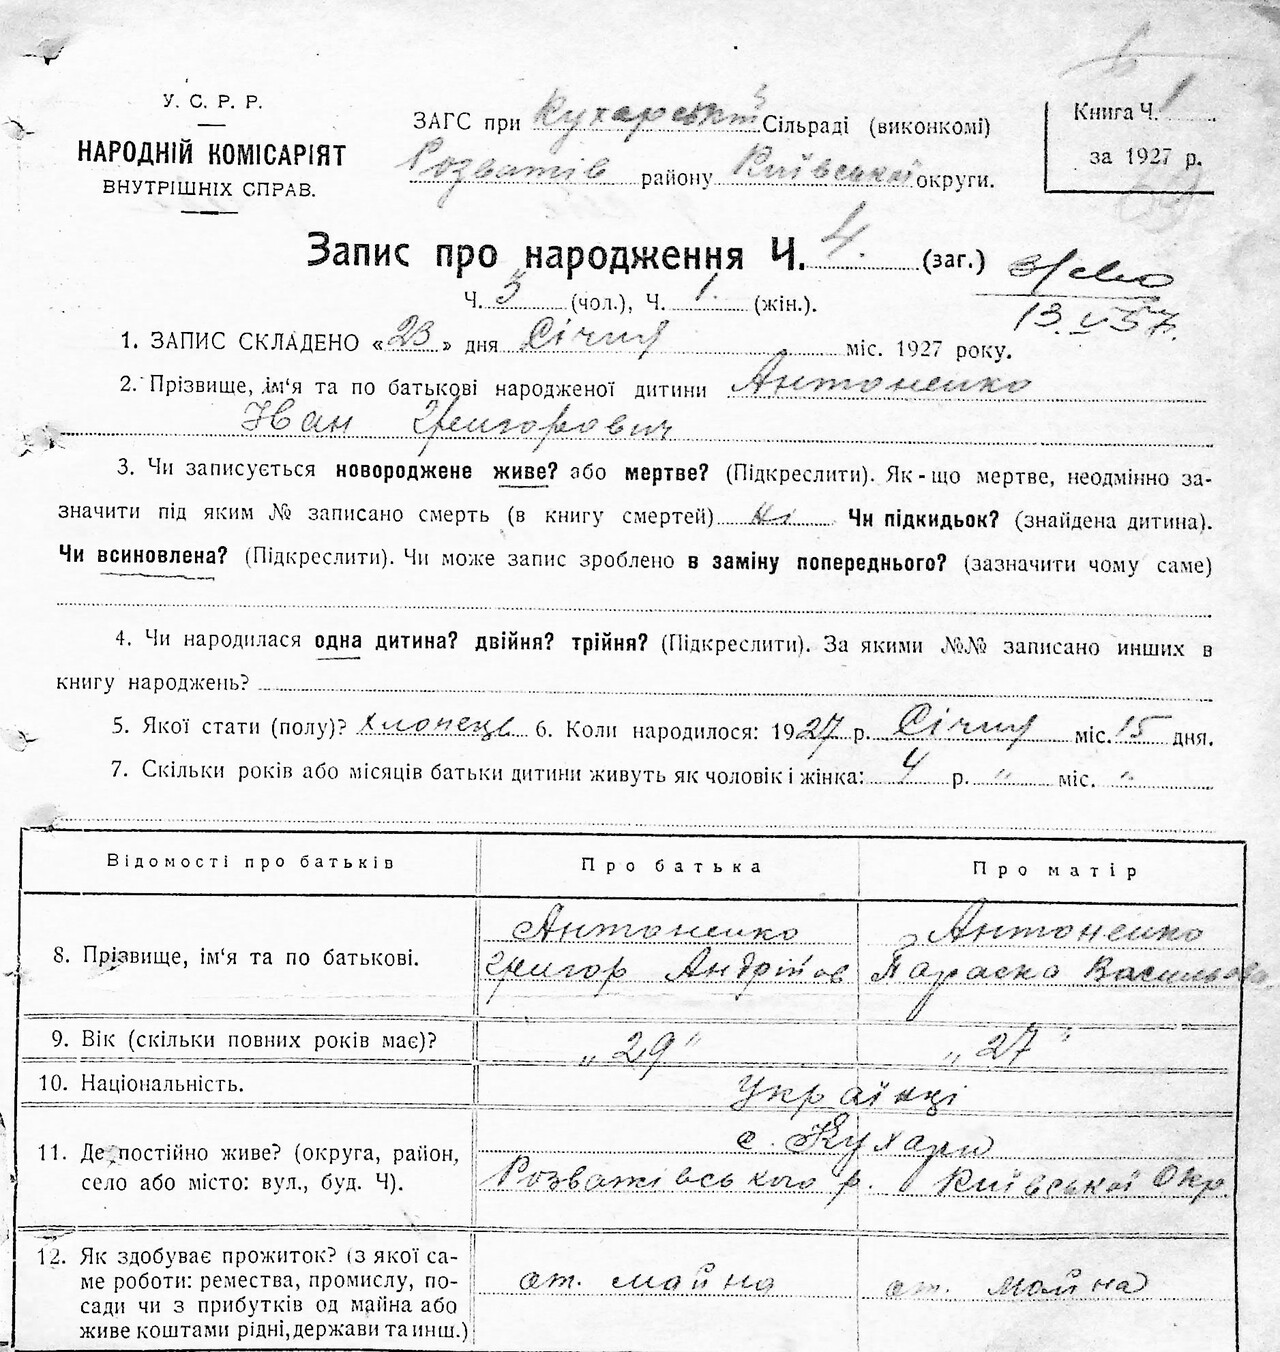 У. С. Р. Р.
НАРОДНІЙ КОМІСАРІЯТ
ВНУТРІШНІХ СПРАВ.
ЗАГС при Кухарській Сільраді (виконкомі)
Розваж района Київської округи.
Книга Ч. 1
за 1927 р.
Запис про народження Ч. 4. (заг.)
Ч. 3 (чол.), Ч. 1. (жін.).
13.V 57.
1. ЗАПИС СКЛАДЕНО «23» дня Січня міс. 1927 року.
2. Прізвище, ім'я та по батькові народженої дитини Антоненко
Іван Григорович
3. Чи записується новороджене живе? або мертве? (Підкреслити). Як-що мертве, неодмінно за-
значити під яким № записано смерть (в книгу смертей) ні Чи підкидьок? (знайдена дитина).
Чи всиновлена? (Підкреслити). Чи може запис зроблено в заміну попереднього? (зазначити чому саме)
4. Чи народилася одна дитина? двійня? трійня? (Підкреслити). За якими №№ записано инших в
книгу народжень?
5. Якої стати (полу)? хлопець 6. Коли народилося: 1927 р. Січня міс. 15 дня.
7. Скільки років або місяців батьки дитини живуть як чоловік і жінка: 4 р. " міс. "
Відомості про батьків Про батька Про матір
8. Прізвище, ім'я та по батькові. Антоненко Григор Андрійов Антоненко Параска Васильова
9. Вік (скільки повних років має)? „29" „27"
10. Національність. Українці
11. Де постійно живе? (округа, район, с. Кухари
село або місто: вул., буд. Ч). Розважівського р. Київської Окр.
12. Як здобуває прожиток? (з якої са-
ме роботи: ремества, промислу, по- от. майна от. майна
сади чи з прибутків од майна або
живе коштами рідні, держави та инш.)